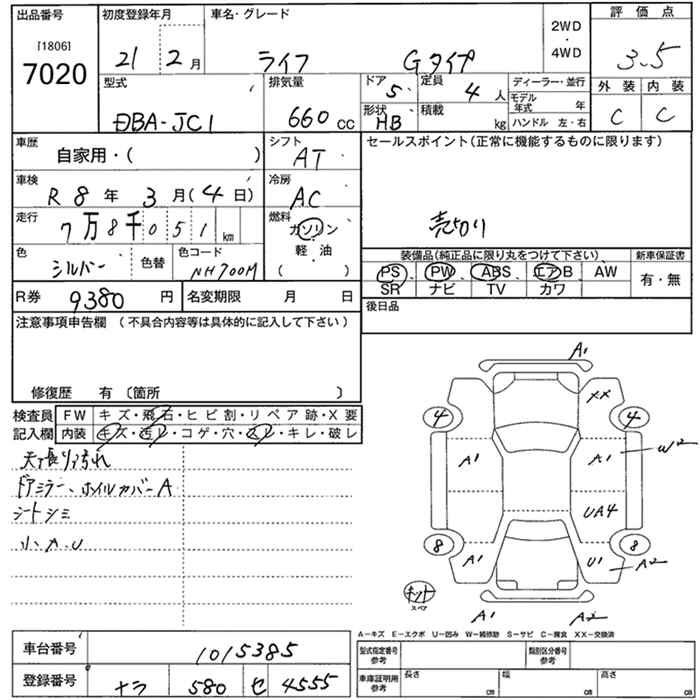 出品番号
[1806]
7020
初度登録年月
21 2月
車名・グレード
ライフ Gタイプ
2WD
・
4WD
評価点
3.5
型式
DBA-JC1
排気量
660 cc
ドア
5
定員
4人
形状
HB
積載
kg
ディーラー・並行
モデル年式 年
ハンドル 左・右
外装
内装
C
C
車歴
自家用・( )
シフト
AT
セールスポイント(正常に機能するものに限ります)
売切り
車検
R 8年 3月(4日)
冷房
AC
走行
7万8千051km
燃料
ガソリン
・
軽油
( )
色
シルバー
色替
色コード
NH700M
装備品(純正品に限り丸をつけて下さい)
新車保証書
PS PW ABS エアB AW
SR ナビ TV カワ
有・無
R券 9380円
名変期限 月 日
後日品
注意事項申告欄 (不具合内容等は具体的に記入して下さい)
修復歴 有〔箇所 〕
検査員
記入欄
FW キズ・飛石・ヒビ割・リペア跡・X要
内装 キズ・汚レ・コゲ・穴・スレ・キレ・破レ
天張り汚れ
ドアミラー、ホイルカバーA
シートシミ
小A.U
A1
XX
4
4
A1
A1
W2
UA4
8
8
A1
U1
A2
キット
スペア
A1
A2
A-キズ E-エクボ U-凹み W-補修跡 S-サビ C-腐食 XX-交換済
車台番号
1015385
登録番号
ナラ 580 セ 4555
型式指定番号
参考
類別区分番号
参考
車庫証明用
参考
長さ cm
幅 cm
高さ cm